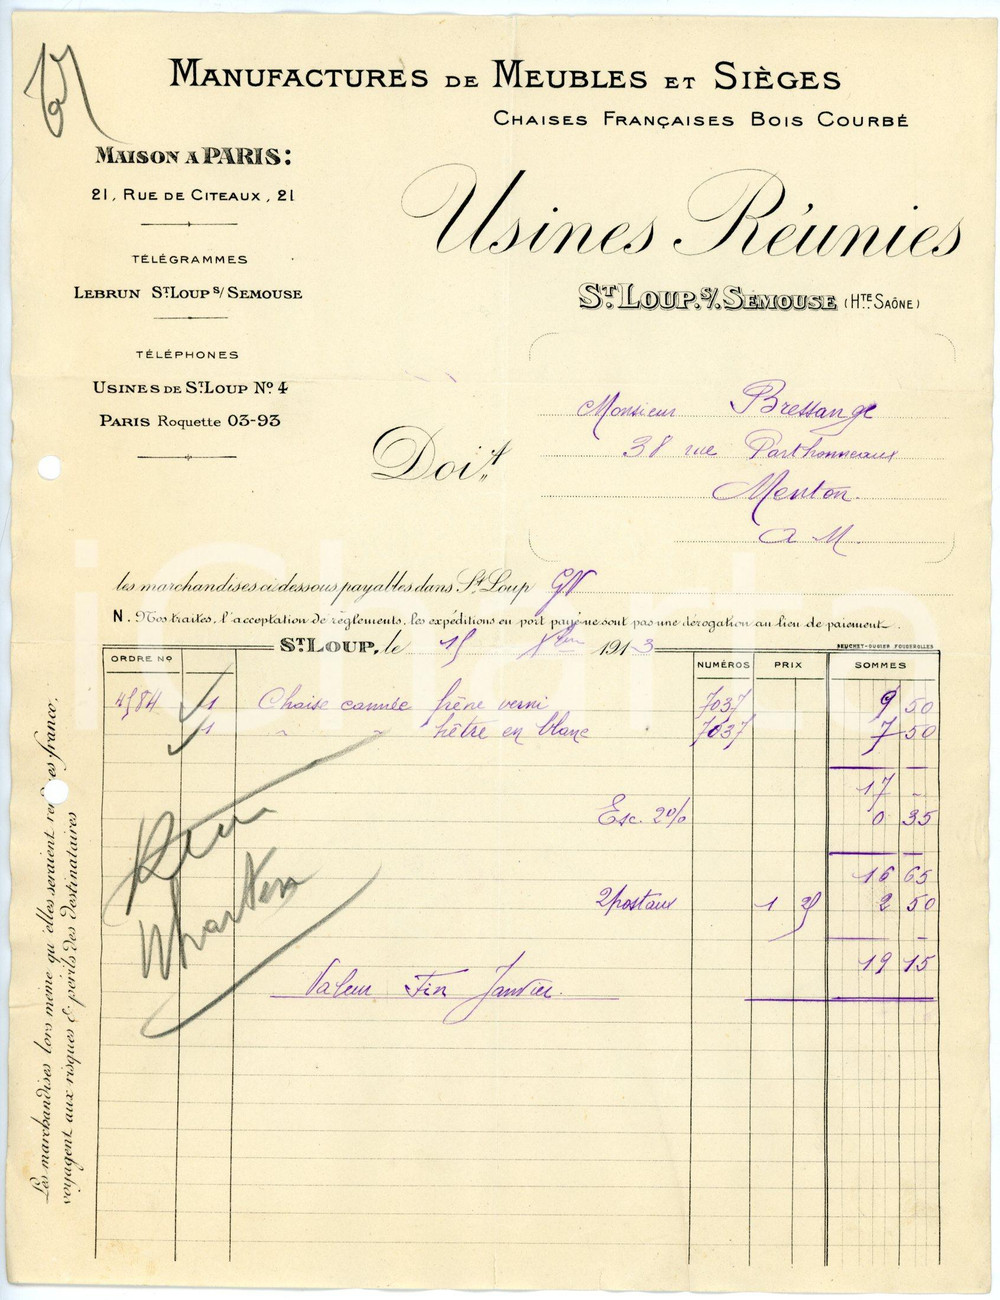 MANUFACTURES DE MEUBLES ET SIÈGES
CHAISES FRANÇAISES BOIS COURBÉ
MAISON A PARIS:
21, RUE DE CITEAUX, 21
TÉLÉGRAMMES
LEBRUN ST LOUP S/ SEMOUSE
TÉLÉPHONES
USINES DE ST LOUP No 4
PARIS Roquette 03-93
Usines Réunies
ST LOUP. S/. SEMOUSE (HTE SAÔNE)
Doit
Monsieur Bressange
38 rue Parthonneaux
Menton.
A M.
les marchandises ci-dessous payables dans St Loup
N. Nos traites, l'acceptation de règlements, les expéditions en port payé ne sont pas une dérogation au lieu de paiement.
ST LOUP, le 15 1913
BEUCHET-DURIER FOUGEROLLES
ORDRE No NUMÉROS PRIX SOMMES
4584 1 Chaise cannée frêne verni 7037 9 50
1 " " hêtre en blanc 7037 7 50
17 - -
Esc. 2% 0 35
16 65
2 postaux 1 25 2 50
19 15
Valeur Fin Janvier.
Les marchandises lors même qu'elles seraient rendues franco,
voyagent aux risques & périls des destinataires
iCharta